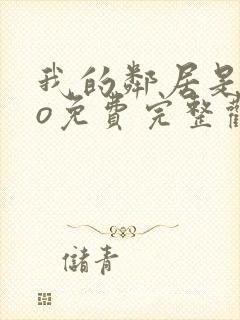 我的鄰居是
o免費完整觀
儲青